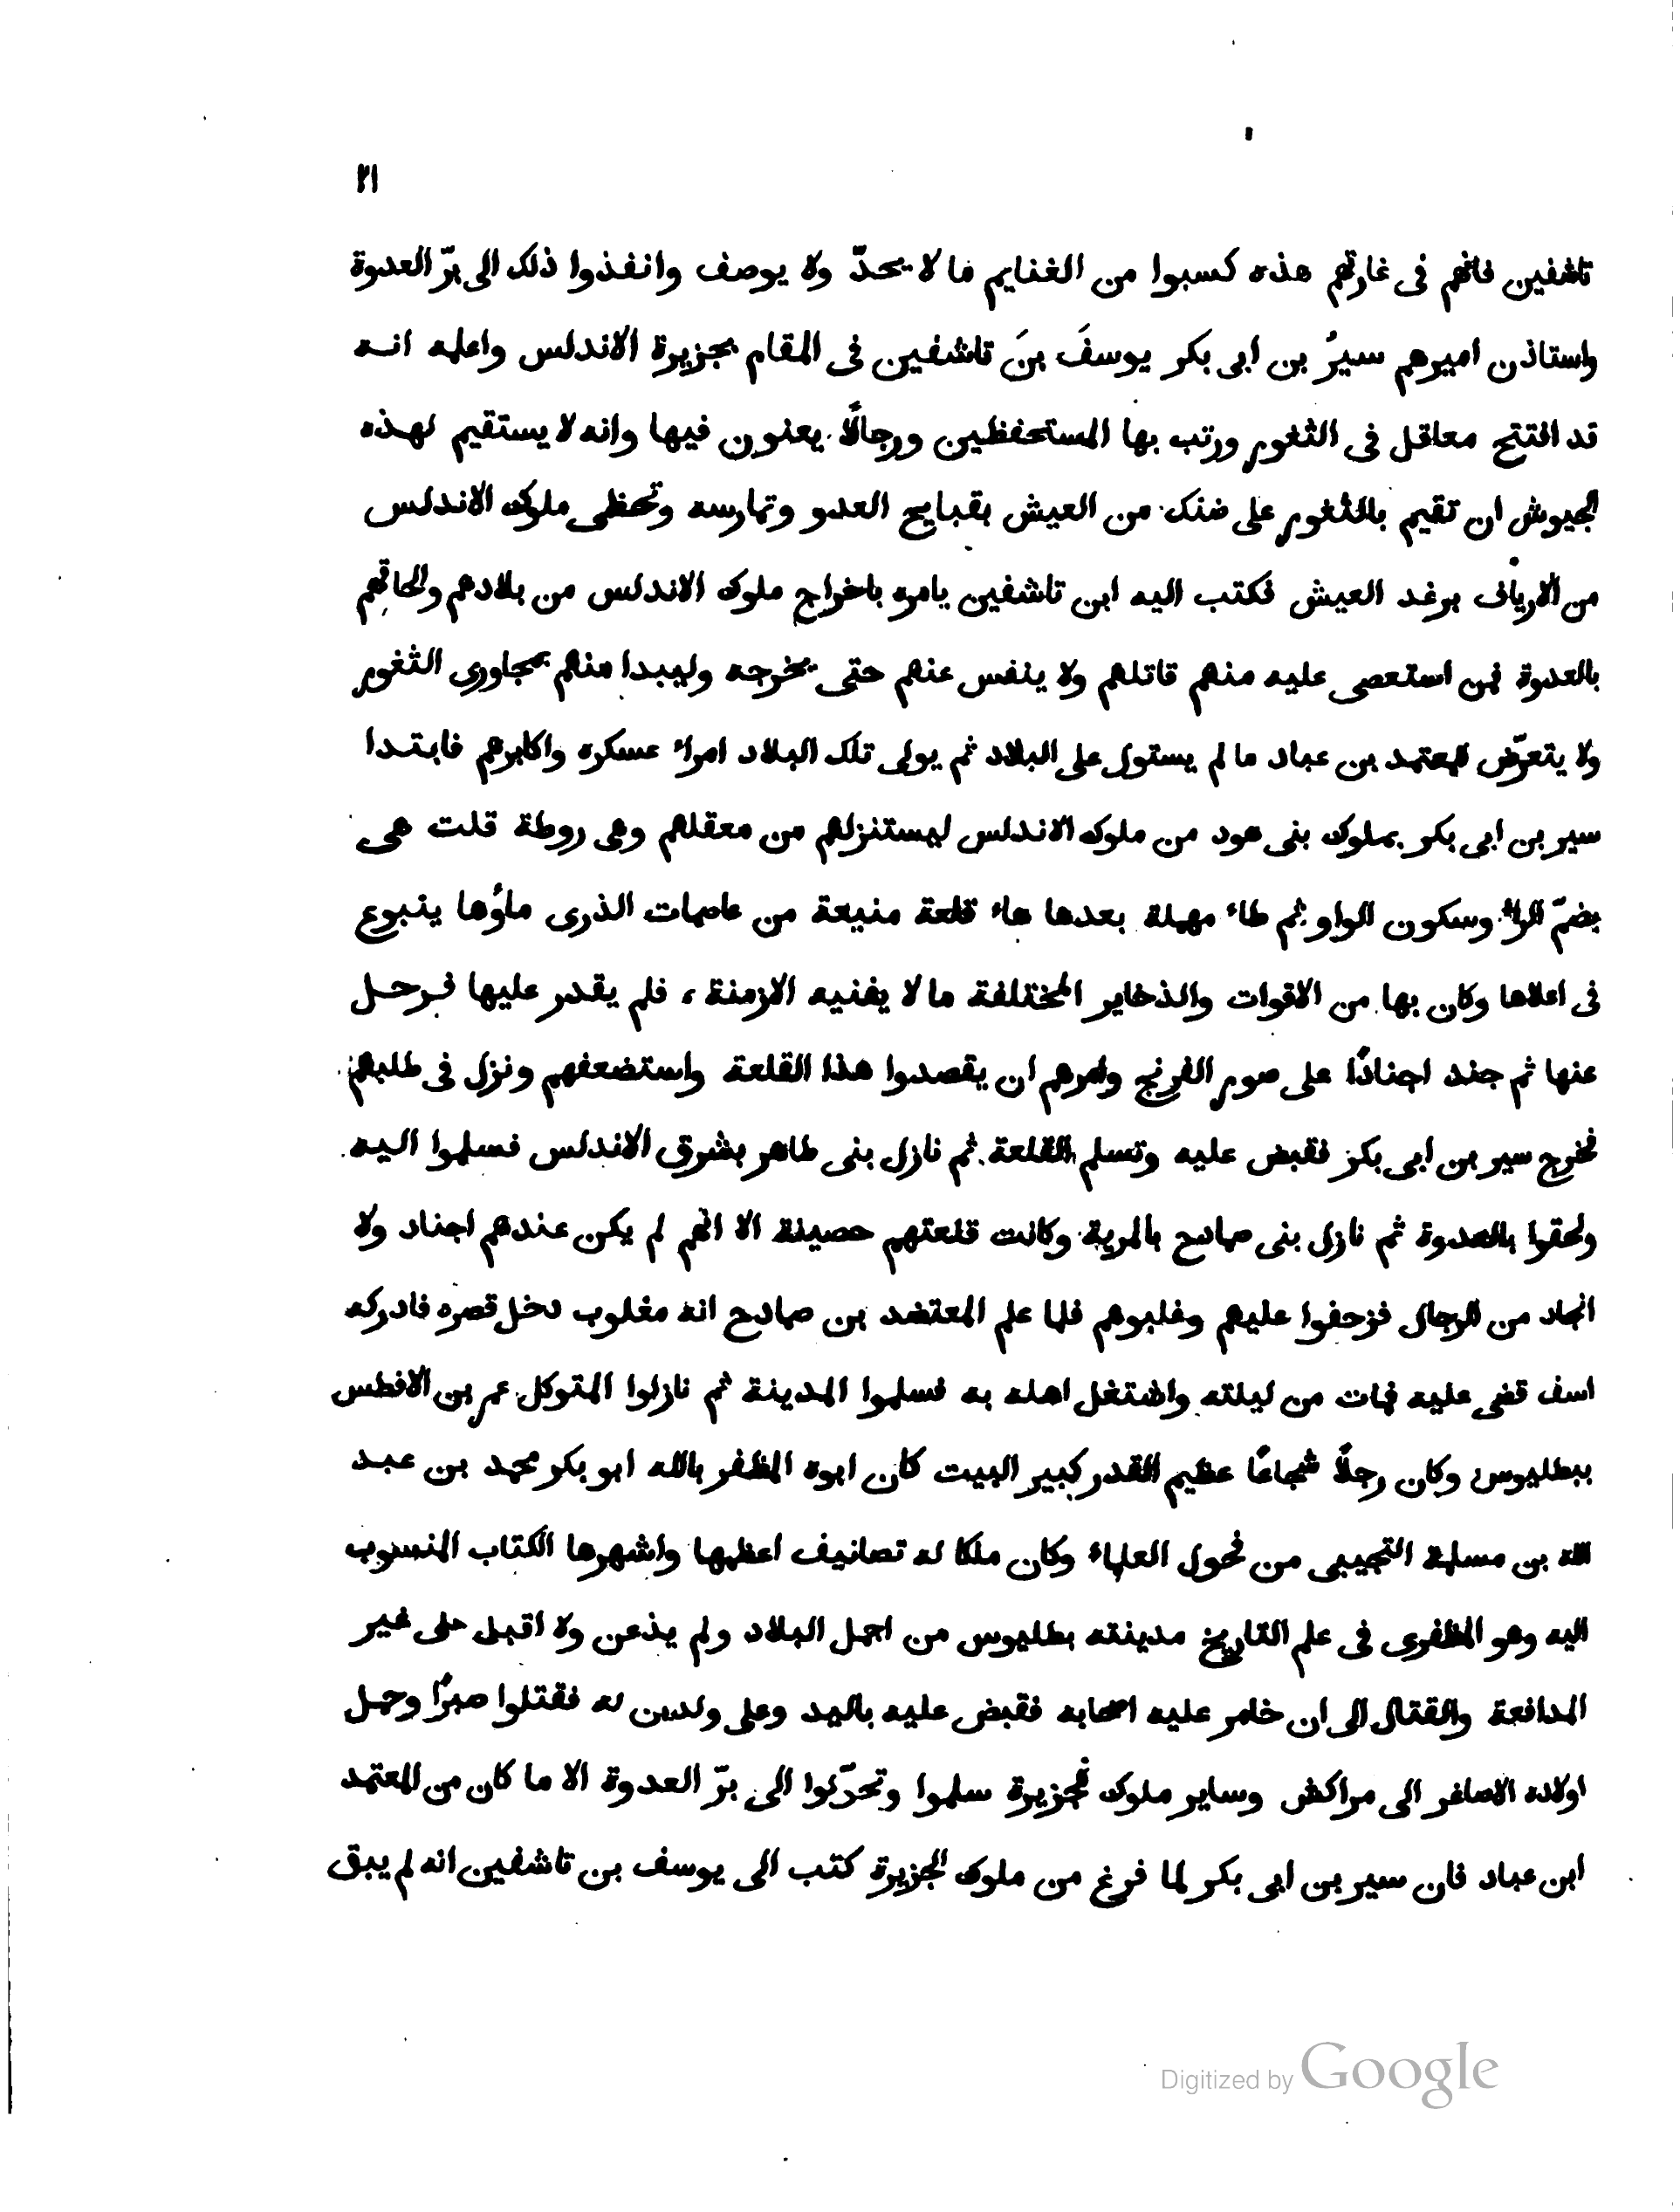 ٢١
تاشفين فانهم فى غارتهم هذه كسبوا من الغنايم ما لا يحدّ ولا يوصف وانفذوا ذلك الى برّ العدوة
واستاذن اميرهم سيرُ بن ابى بكر يوسفَ بنَ تاشفين فى المقام بجزيرة الاندلس واعلمه انه
قد افتتح معاقل فى الثغور ورتب بها المستحفظين ورجالًا يعنون فيها وانه لا يستقيم لهذه
الجيوش ان تقيم بالثغور على ضنك من العيش بقبايح العدو وتمارسه وتحظى ملوك الاندلس
من الارياف برغد العيش فكتب اليه ابن تاشفين يامره باخراج ملوك الاندلس من بلادهم والحاقهم
بالعدوة فمن استعصى عليه منهم قاتلهم ولا ينفس عنهم حتى يخرجه وليبدا منهم بمجاورى الثغور
ولا يتعرّض للمعتمد بن عباد ما لم يستول على البلاد ثم يولى تلك البلاد امراء عسكره واكابرهم فابتدا
سير بن ابى بكر بملوك بنى هود من ملوك الاندلس ليستنزلهم من معقلهم وهى روطة قلت هى
بضمّ الراء وسكون الواو ثم طاء مهملة بعدها هاء قلعة منيعة من عاصمات الذرى ماؤها ينبوع
فى اعلاها وكان بها من الاقوات والذخاير المختلفة ما لا يفنيه الازمنة ، فلم يقدر عليها فرحل
عنها ثم جند اجنادًا على صور الفرنج وامرهم ان يقصدوا هذا القلعة واستضعفهم ونزل فى طلبهم
فخرج سير بن ابى بكر فقبض عليه وتسلم القلعة ثم نازل بنى طاهر بشرق الاندلس فسلموا اليه
ولحقوا بالعدوة ثم نازل بنى صمادح بالمرية وكانت قلعتهم حصينة الا انهم لم يكن عندهم اجناد ولا
انجاد من الرجال فزحفوا عليهم وغلبوهم فلما علم المعتضد بن صمادح انه مغلوب دخل قصره فادركه
اسف قضى عليه فمات من ليلته واشتغل اهله به فسلموا المدينة ثم نازلوا المتوكل عمر بن الافطس
ببطليوس وكان رجلًا شجاعًا عظيم القدر كبير البيت كان ابوه المظفر بالله ابو بكر محمد بن عبد
الله بن مسلمة التجيبى من فحول العلماء وكان ملكا له تصانيف اعظمها واشهرها الكتاب المنسوب
اليه وهو المظفرى فى علم التاريخ مدينته بطليوس من اجمل البلاد ولم يذعن ولا اقبل على غير
المدافعة والقتال الى ان خامر عليه اصحابه فقبض عليه باليد وعلى ولدين له فقتلوا صبرًا وحمل
اولاده الاصاغر الى مراكش وساير ملوك الجزيرة سلموا وتحوّلوا الى برّ العدوة الا ما كان من المعتمد
ابن عباد فان سير بن ابى بكر لما فرغ من ملوك الجزيرة كتب الى يوسف بن تاشفين انه لم يبق
Digitized by Google